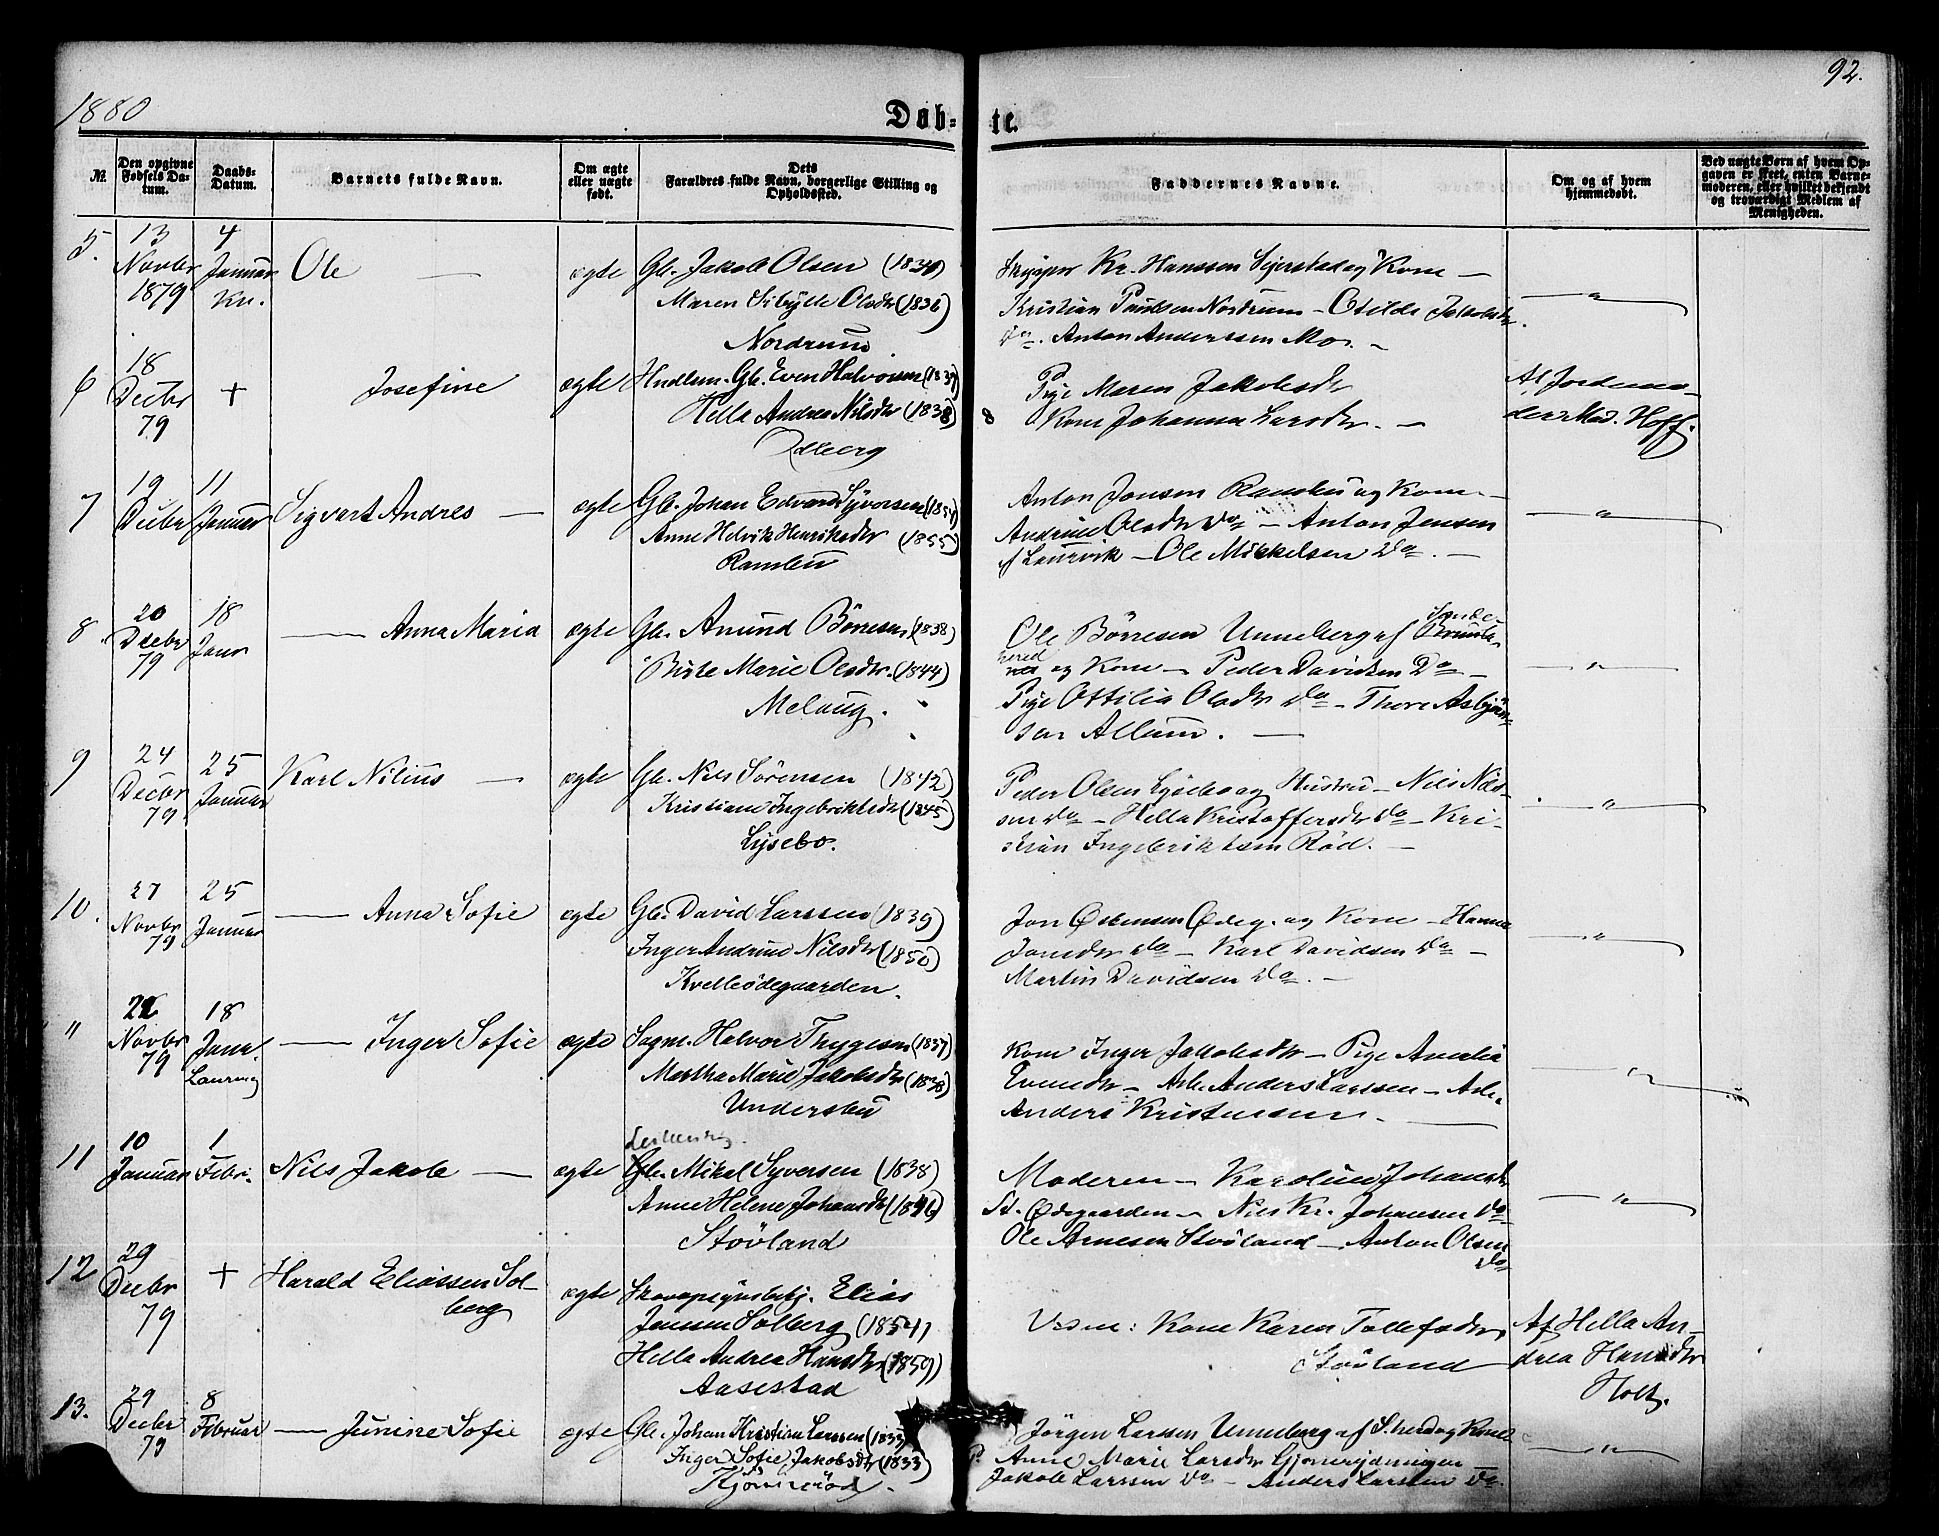 92.
1880
Døb- te.
№.
Den opgivne Fødsels Datum.
Daabs-Datum.
Barnets fulde Navn.
Om ægte eller uægte født.
Dets Forældres fulde Navn, borgerlige Stilling og Opholdssted.
Faddernes Navne.
Om og af hvem hjemmedøbt.
Ved uægte Børn af hvem Opgaven er skeet, enten Barnemoderen, eller hvilket bekjendt og troværdigt Medlem af Menigheden.
5. 13 Novbr 1879 4 Januar Kv. Ole — ægte Gb. Jakob Olsen
Maren Sibylle Olsdtr (1836)
Nordrum
Skipper Kr. Hanssen Sjerstad og Kone —
Kristian Paulsen Nordrum — Otilde Jakobsdtr
do. Anton Anderssen Mo. — "
6 18 Decbr 79 + Josefine ægte Hndlsm. Gb. Even Halvorsen
Hella Andrea Nilsdtr (1838)
Odberg
Pige Maren Jakobsdtr
Kone Johanna Larsdtr. —
Af Jordemoderen Mad. Hoff.
7 19 Decbr 11 Januar Sigvart Andres — ægte Gb. Johan Edvard Syversen (1854)
Anne Helvik Henriksdtr (1855)
Ramsbu
Anton Jonsen Ramsbu og Kone —
Andrine Olsdtr do — Anton Jensen
af Laurvik — Ole Mikkelsen do. — "
8 20 Decbr 79 18 Janr — Anna Maria ægte Gb. Amund Børresen (1838)
Birte Marie Olsdtr. (1844)
Melaug.
Ole Børresen Unneberg af Sande-
hered og Kone — Peder Davidsen do —
Pige Ottilia Olsdtr do — Thore Asbjørn-
sen Allum. — "
9 24 Decbr 79 25 Januar Karl Nilius — ægte Gb. Nils Sørensen (1842)
Kristiane Ingebriktsdtr (1845)
Lysebo.
Peder Olsen Lysebo og Hustru — Nils Nils-
sen do — Hella Kristoffersdtr do — Kri-
stian Ingebriktsen Rød. — "
10. 27 Novbr 79 25 Januar — Anna Sofie ægte Gb. David Larssen (1839)
Inger Andrine Nilsdtr (1850)
Kvelleødegaarden.
Jon Østensen Ødeg. og Kone — Hanna
Jonsdtr do — Karl Davidsen do —
Martin Davidsen do. — "
" Novbr 79 18 Janr. Laurvig — Inger Sofie ægte Sagm. Halvor Thygesen (1857)
Martha Marie Jakobsdtr (1838)
Undersbu
Kone Inger Jakobsdtr — Pige Amalia
Evensdtr — Arb. Anders Larssen — Arb.
Anders Kristensen. — "
11 10 Januar 1 Febr. Nils Jakob — ægte Gb. Mikal Syversen (1838)
Anne Helene Johansdtr (1846)
Støvland
Moderen — Karoline Johansdtr
St. Ødegaarden — Nils Kr. Johansen do
Ole Arnesen Støvland — Anton Olsen
do "
12 29 Decbr 79 + Harald Eliassen Sol-
berg ægte Skovopsynsbetj. Elias
Jensen Solberg (1854)
Hella Andrea Hansdtr (1859)
Aasestad
Vidne: Kone Karen Tollefsdtr
Støvland
Af Hella An-
drea Hansdtr
Holt.
13. 29 Decbr 79 8 Februar — Junine Sofie ægte Gb. Johan Kristian Larssen (1833)
Inger Sofie Jakobsdtr (1833)
Jørgen Larsen Unneberg af S.hered og Kone
P. Anne Marie Larsdtr
Jakob Larssen do — Anders Larssen do. "